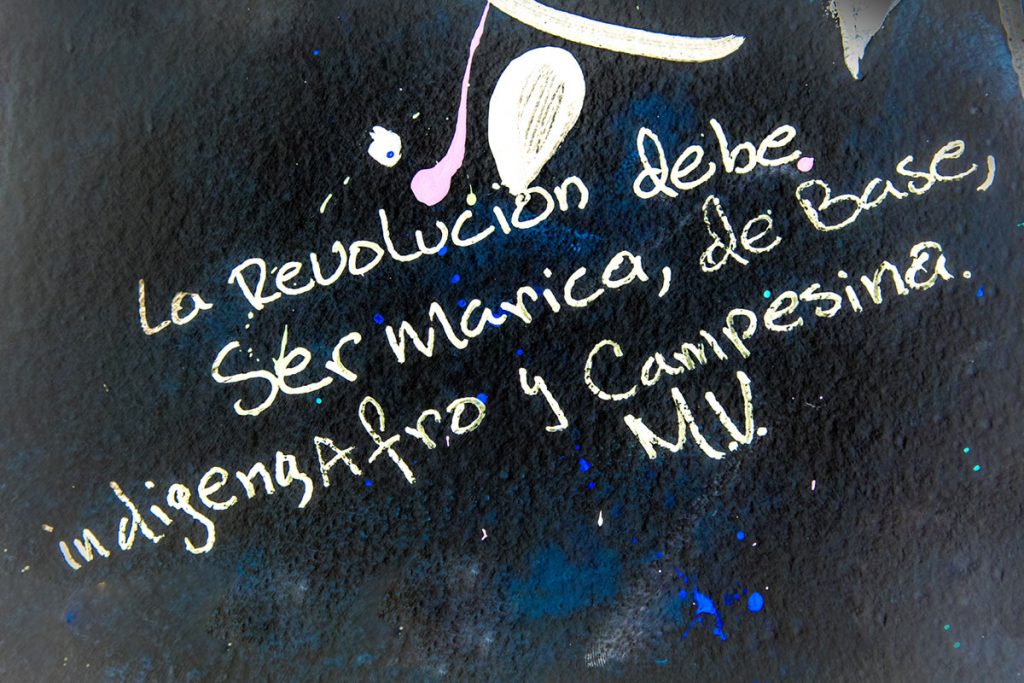 La Revolución debe
Ser Marica, de Base,
indigena, Afro y Campesina.
M.V.